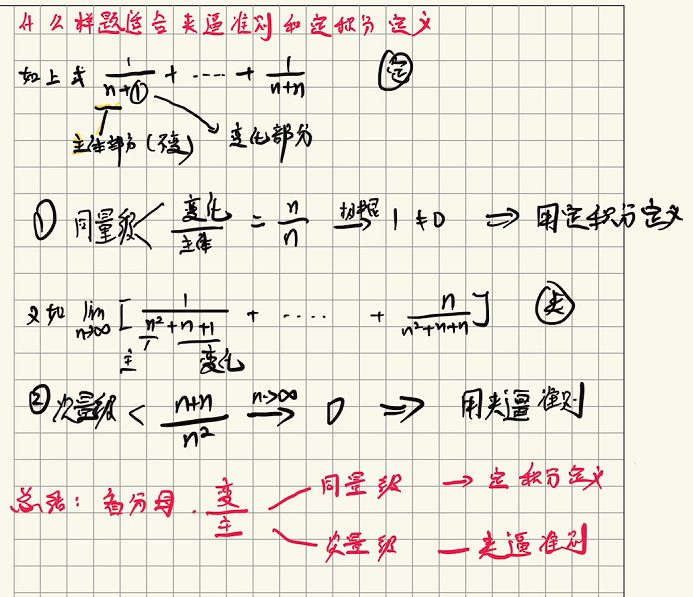 什么样题适合夹逼准则和定积分定义
如上式 1/(n+①) + ···· + 1/(n+n) 定
主体部分(不变) 变化部分
① 同量级< 变化/主体 = n/n → 1 ≠ 0 ⇒ 用定积分定义
又如 lim n→∞ [ 1/(n²+n+1) + ···· + n/(n²+n+n) ] 夹
主 变化
② 次量级 < (n+n)/n² n->∞ → 0 ⇒ 用夹逼准则
总结: 看分母. 变/主 同量级 → 定积分定义
次量级 — 夹逼准则